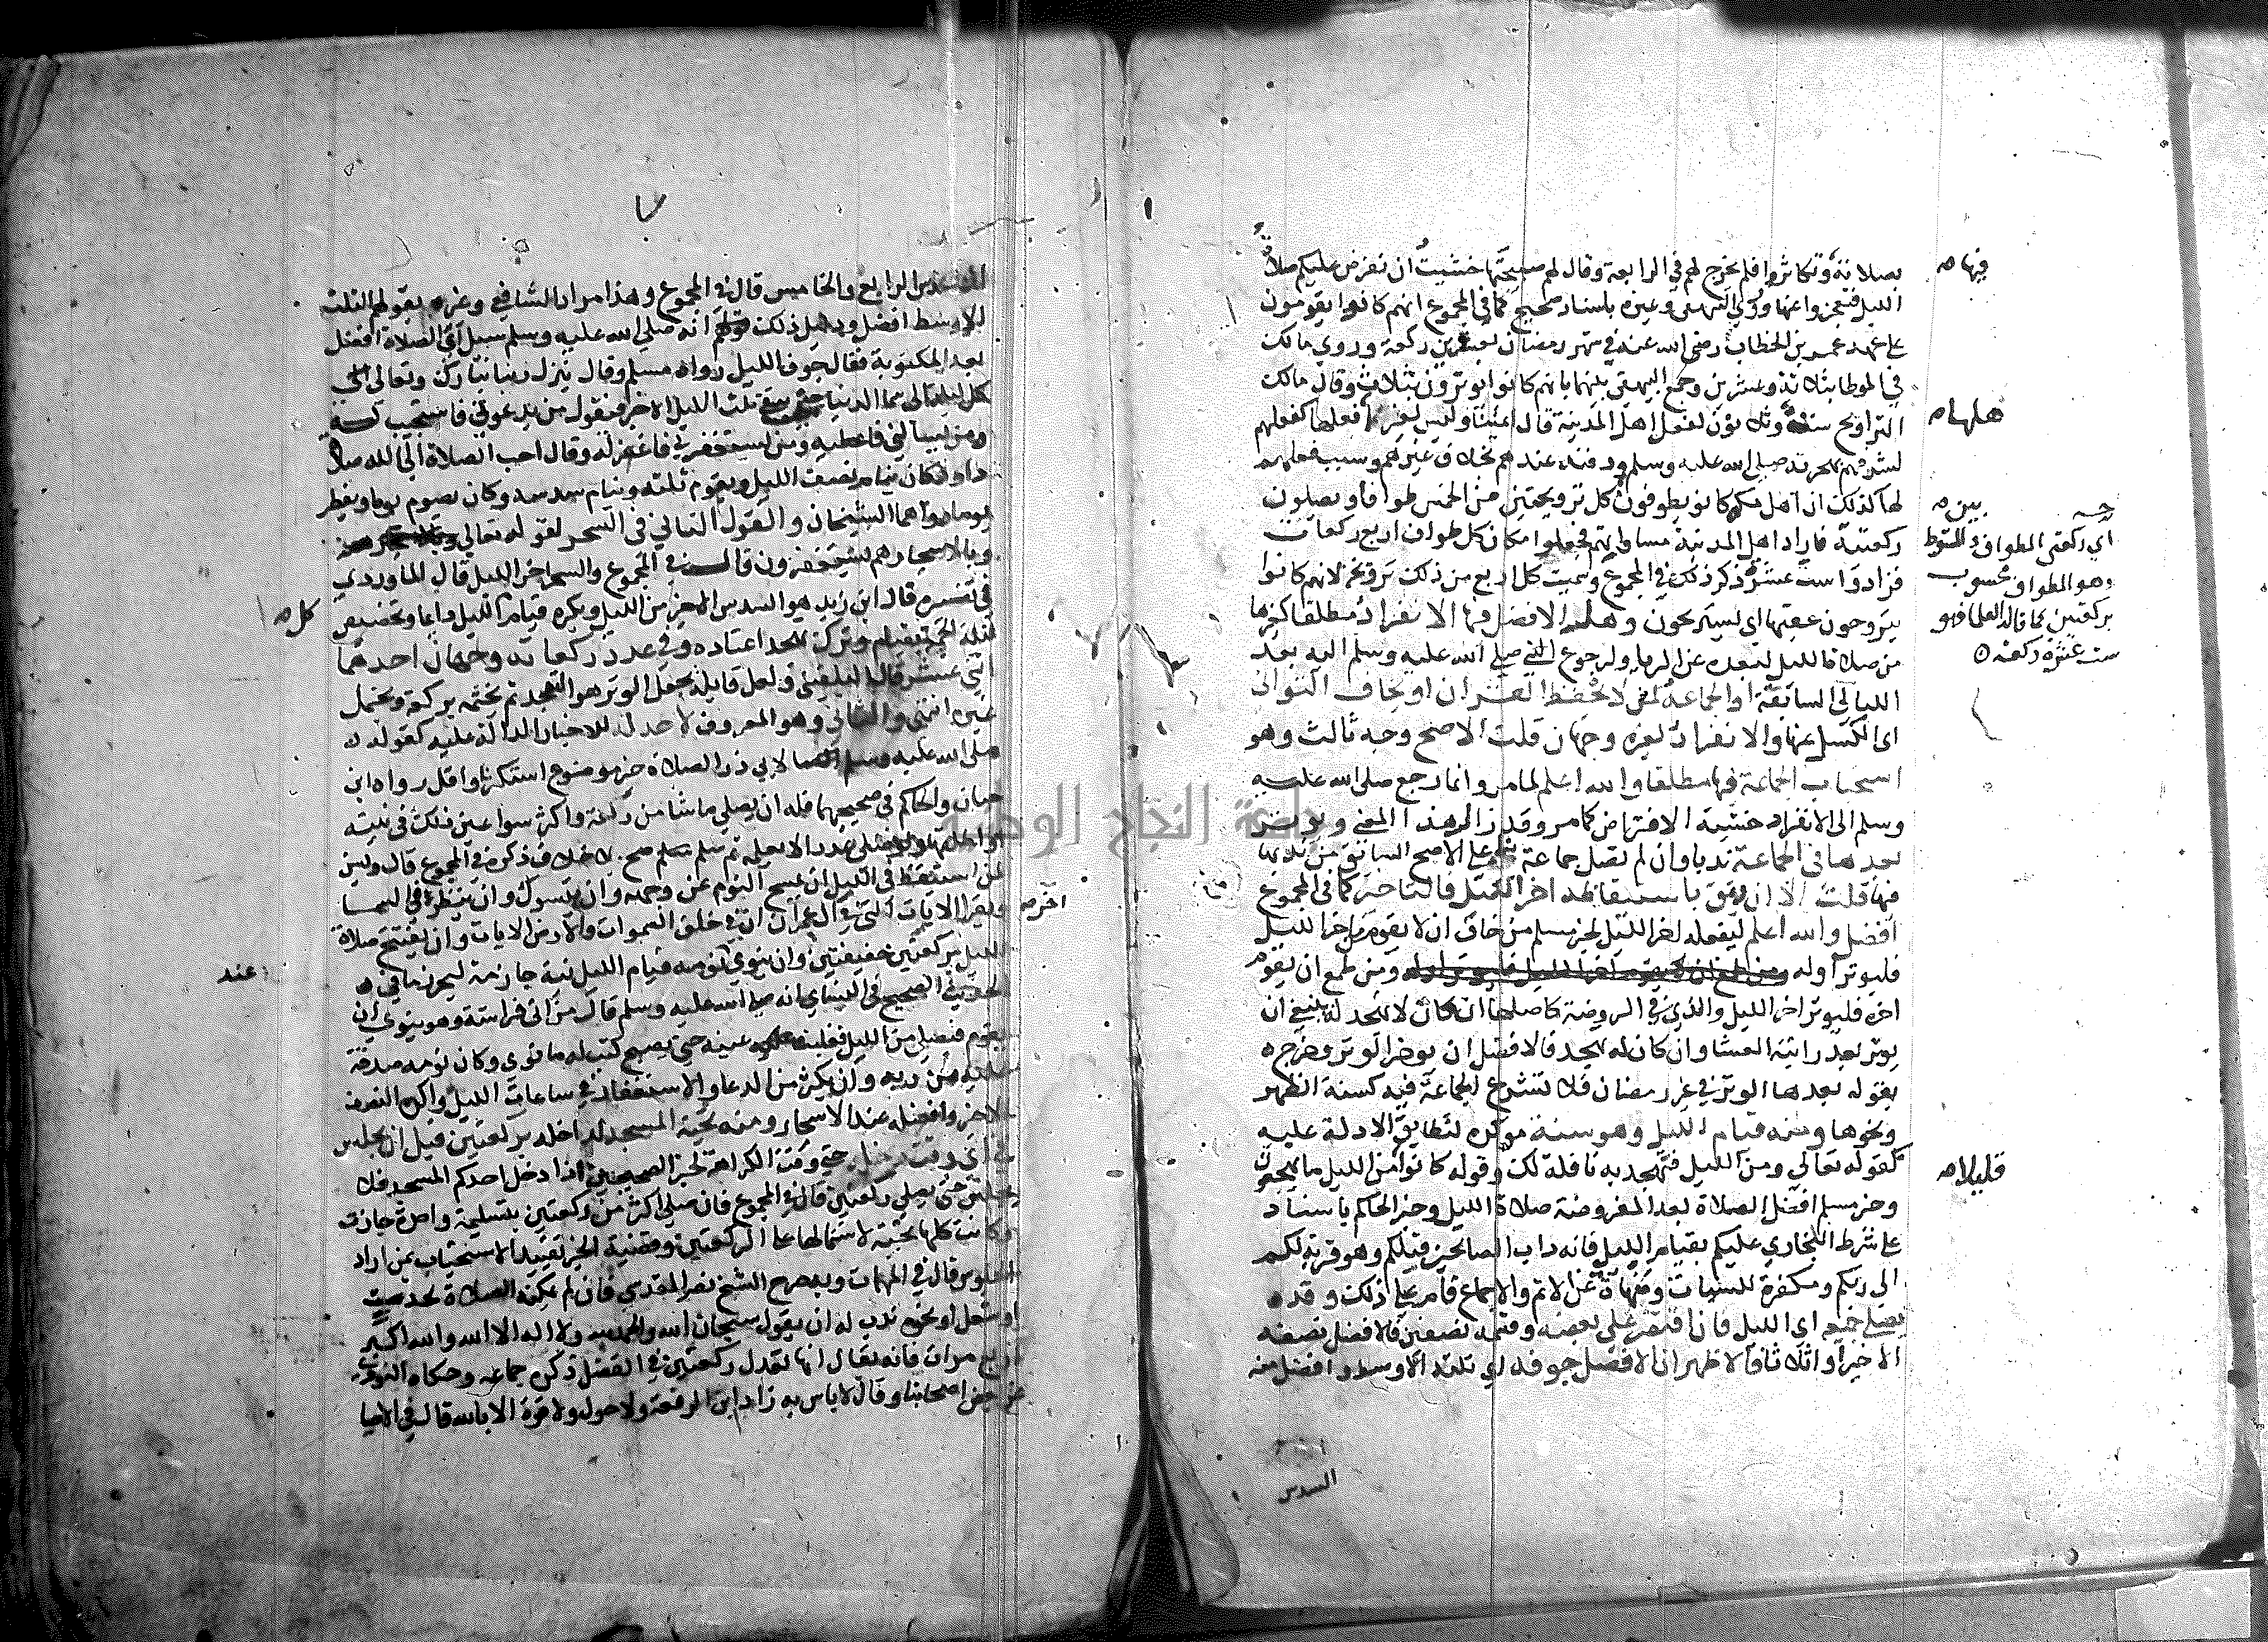 بصلاته وتكاثروا فلم يخرج لهم في الرابعة وقال لهم صبيحتها خشيت ان تفرض عليكم صلاة
الليل فتعجزوا عنها وروي البيهقي وغيره باسناد صحيح كما في المجموع انهم كانوا يقومون
على عهد عمر بن الخطاب رضي الله عنه في شهر رمضان بعشرين ركعة وروي مالك
في الموطا بثلاثة وعشرين وجمع البيهقي بينهما بانهم كانوا يوترون بثلاث وقال مالك
التراويح ست وثلاثون لفعل اهل المدينة قال ائمتنا وليس لغيرهم فعلها كفعلهم
لشرفهم بهجرته صلى الله عليه وسلم ودفنه عندهم بخلاف غيرهم وسبب فعلهم
لها كذلك ان اهل مكة كانوا يطوفون كل ترويحتين من الخمس طوافا ويصلون
ركعتيه فاراد اهل المدينة مساواتهم فجعلوا مكان كل طواف اربع ركعات
فزادوا ست عشرة ذكر ذلك في المجموع وسميت كل اربع من ذلك ترويحة لانهم كانوا
يتروحون عقبها اي يستريحون وهل الافضل فيها الانفراد مطلقا كغيرها
من صلاة الليل لبعده عن الريا ولرجوع النبي صلى الله عليه وسلم اليه بعد
الليالي السابقة او الجماعة لمن لا يحفظ القران او يخاف التواني
اي الكسل عنها والانفراد لغيره وجهان قلت الاصح وجه ثالث وهو
استحباب الجماعة فيها مطلقا والله اعلم لما مر وانما رجع صلى الله عليه
وسلم الى الانفراد خشية الافتراض كما مر وقد زال هذا المعنى ويوتر
بعدها في الجماعة ندبا وان لم تصل جماعة بنا على الاصح السابق من ندبها
فيها قلت الا ان وثق باستيقاظه اخر الليل فالتاخير كما في المجموع
افضل والله اعلم ليفعله اخر الليل لخبر مسلم من خاف ان لا يقوم من اخر الليل
فليوتر اوله ومن طمع ان يقوم
اخره فليوتر اخر الليل والذي في الروضة كاصلها ان كان لا تهجد له ينبغي ان
يوتر بعد راتبة العشا وان كان له تهجد فالافضل ان يوخر الوتر وخرج
بقوله بعدها الوتر في غير رمضان فلا تشرع الجماعة فيه كسنة الظهر
ونحوها ومنه قيام الليل وهو سنة موكده لتطابق الادلة عليه
كقوله تعالى ومن الليل فتهجد به نافلة لك وقوله كانوا من الليل ما يهجعون
وخبر مسلم افضل الصلاة بعد المفروضة صلاة الليل وخبر الحاكم باسناد
على شرط البخاري عليكم بقيام الليل فانه داب الصالحين قبلكم وهو قربة لكم
الى ربكم ومكفرة للسيئات ومنهاة عن الاثم والاجماع قام على ذلك وقد
يصلي جميع اي الليل فان اقتصر على بعضه وقسمه نصفين فالافضل نصفه
الاخير او اثلاثا فالاظهر ان الافضل جوفه اي ثلثه الاوسط وافضل منه
السدس
فيها
هلها
بين
اي ركعتي الطواف
وهو الطواف محسوب
بركعتين كما قاله العلما فهو
ست عشرة ركعة
قليلا
السدس الرابع والخامس قال في المجموع وهذا مراد الشافعي وغيره بقولهم الثلث
الاوسط افضل ودليل ذلك انه صلى الله عليه وسلم سيل اي الصلاة افضل
بعد المكتوبة فقال جوف الليل رواه مسلم وقال ينزل ربنا تبارك وتعالى
كل ليلة الى سما الدنيا حين يبقى ثلث الليل الاخير فيقول من يدعوني فاستجيب له
ومن يسالني فاعطيه ومن يستغفرني فاغفر له وقال احب الصلاة الى الله صلاة
داود كان ينام نصف الليل ويقوم ثلثه وينام سدسه وكان يصوم يوما ويفطر
يوما رواهما الشيخان والقول الثاني في السحر لقوله تعالى
وبالاسحار هم يستغفرون قال في المجموع والسحر اخر الليل قال الماوردي
في تفسيره قال ابن زيد هو السدس الاخير من الليل ويكره قيام الليل دايما وتخصيص
ليلة الجمعة بقيام وترك تهجد اعتاده وفي عدد ركعاته وجهان احدهما
اثني عشر قال البلقيني ولعل قايله يجعل الوتر هو التهجد ثم يختمه بركعة ويحتمل
غيره انتهى والثاني وهو المعروف لا حد له للاخبار الدالة عليه كقوله
صلى الله عليه وسلم لابي ذر الصلاة خير موضوع استكثر او اقل رواه ابن
حبان والحاكم في صحيحيهما فله ان يصلي ما شا من ركعة واكثر سوا عين ذلك في نيته
ام اطلقها ولو صلى عددا لا يعلمه ثم سلم صح بلا خلاف ذكره في المجموع قال ويسن
لمن استيقظ في الليل ان يمسح النوم عن وجهه وان يتسوك وان ينظر في السما
ويقرا الايات التي في ال عمران ان في خلق السموات والارض الايات وان يفتتح صلاة
الليل بركعتين خفيفتين وان ينوي نومه قيام الليل نية جازمة ليحوز ما في
الحديث الصحيح في النسائي انه صلى الله عليه وسلم قال من اتى فراشه وهو ينوي ان
يقوم فيصلي من الليل فغلبته عينه حتى يصبح كتب له ما نوى وكان نومه صدقة
عليه من ربه وان يكثر من الدعا والاستغفار في ساعات الليل واكده النصف
الاخير وافضله عند الاسحار ومنه تحية المسجد لداخله بركعتين قبل ان يجلس
في اي وقت دخل حتى وقت الكراهة لخبر الصحيحين اذا دخل احدكم المسجد فلا
يجلس حتى يصلي ركعتين قال في المجموع فان صلى اكثر من ركعتين بتسليمة واحدة جاز
وكانت كلها تحية لاشتمالها على الركعتين وقضية الخبر تقييد الاستحباب بمن اراد
الجلوس قال في المهمات وبه صرح الشيخ نصر المقدسي فان لم يمكنه الصلاة لحدث
او شغل او نحوه ندب له ان يقول سبحان الله والحمد لله ولا اله الا الله والله اكبر
اربع مرات فانه يقال انها تعدل ركعتين في الفضل ذكره جماعه وحكاه النووي
عن بعض اصحابنا وقال لا باس به زاد ابن الرفعة ولا حول ولا قوة الا بالله قال في الاحيا
كل
اخر
عند
جامعة النجاح الوطنية